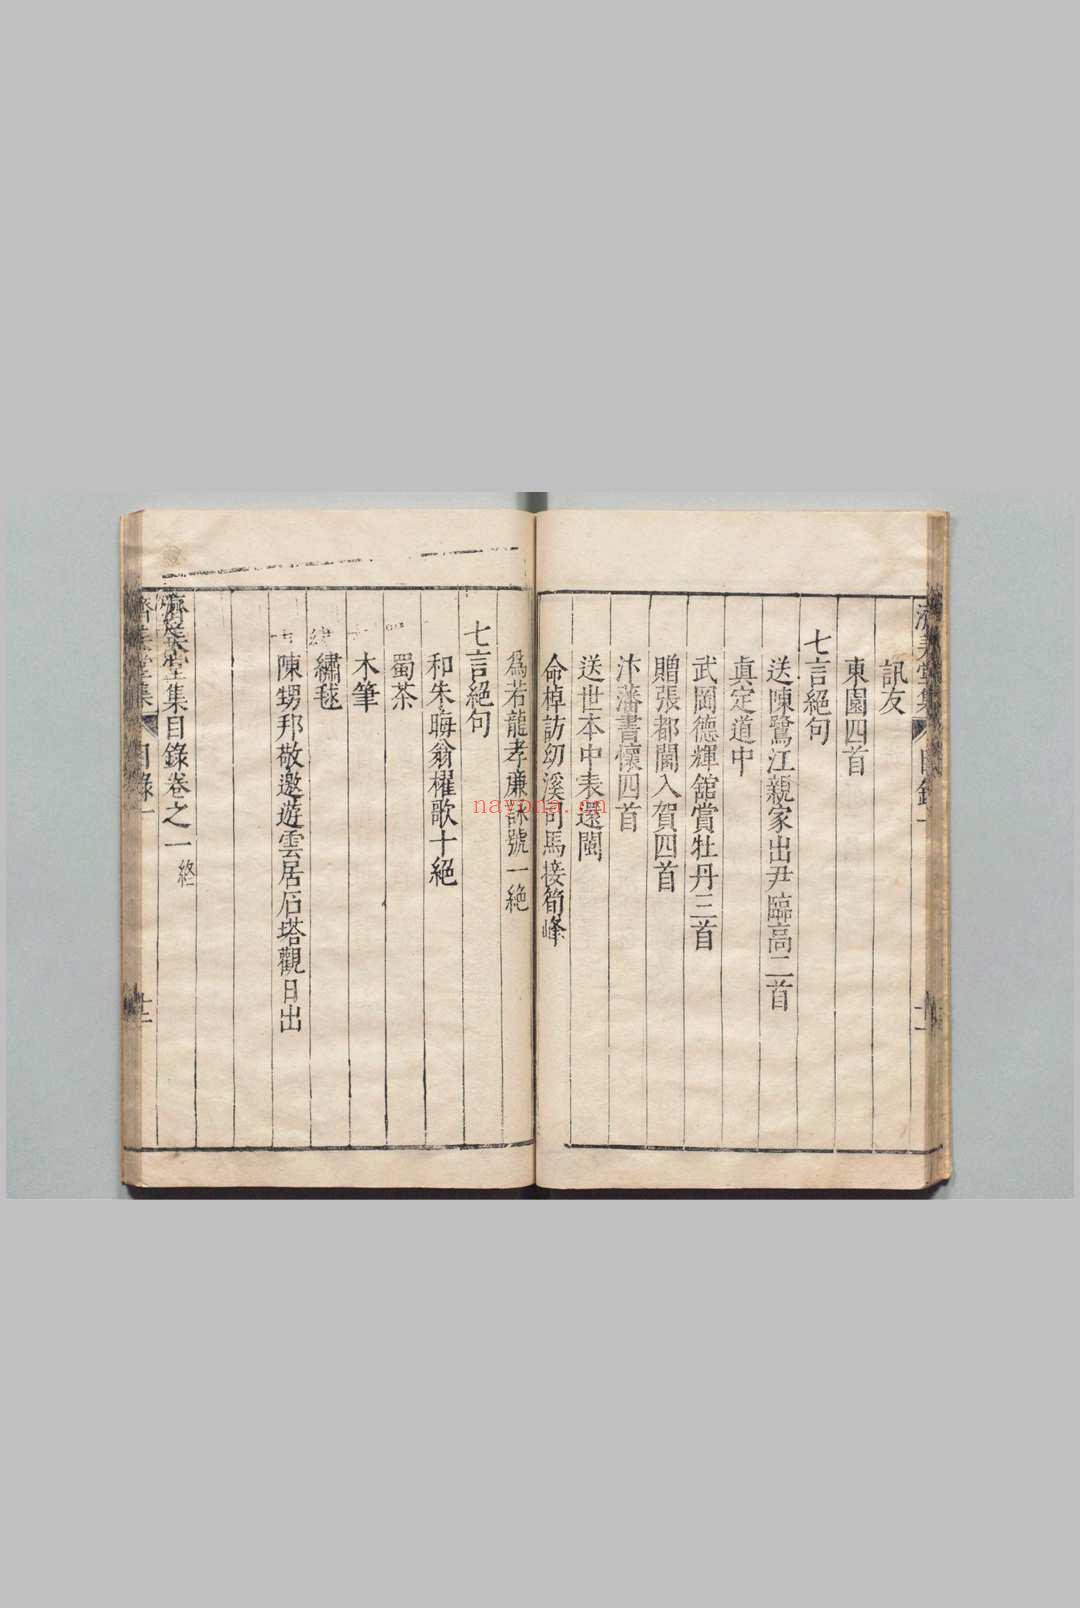 訊友
東園四首
七言絕句
送陳鷺江親家出尹臨高二首
真定道中
武岡德輝舘賞牡丹三首
贈張都閫入賀四首
汴藩書懷四首
送世本中表還閩
命棹訪幼溪司馬接筍峰
為若龍孝廉詠號一絶
七言絕句
和朱晦翁櫂歌十絕
蜀茶
木筆
繡毬
陳甥邦敬邀遊雲居石塔觀日出
濟美堂集目錄卷之一終
nayona.cn